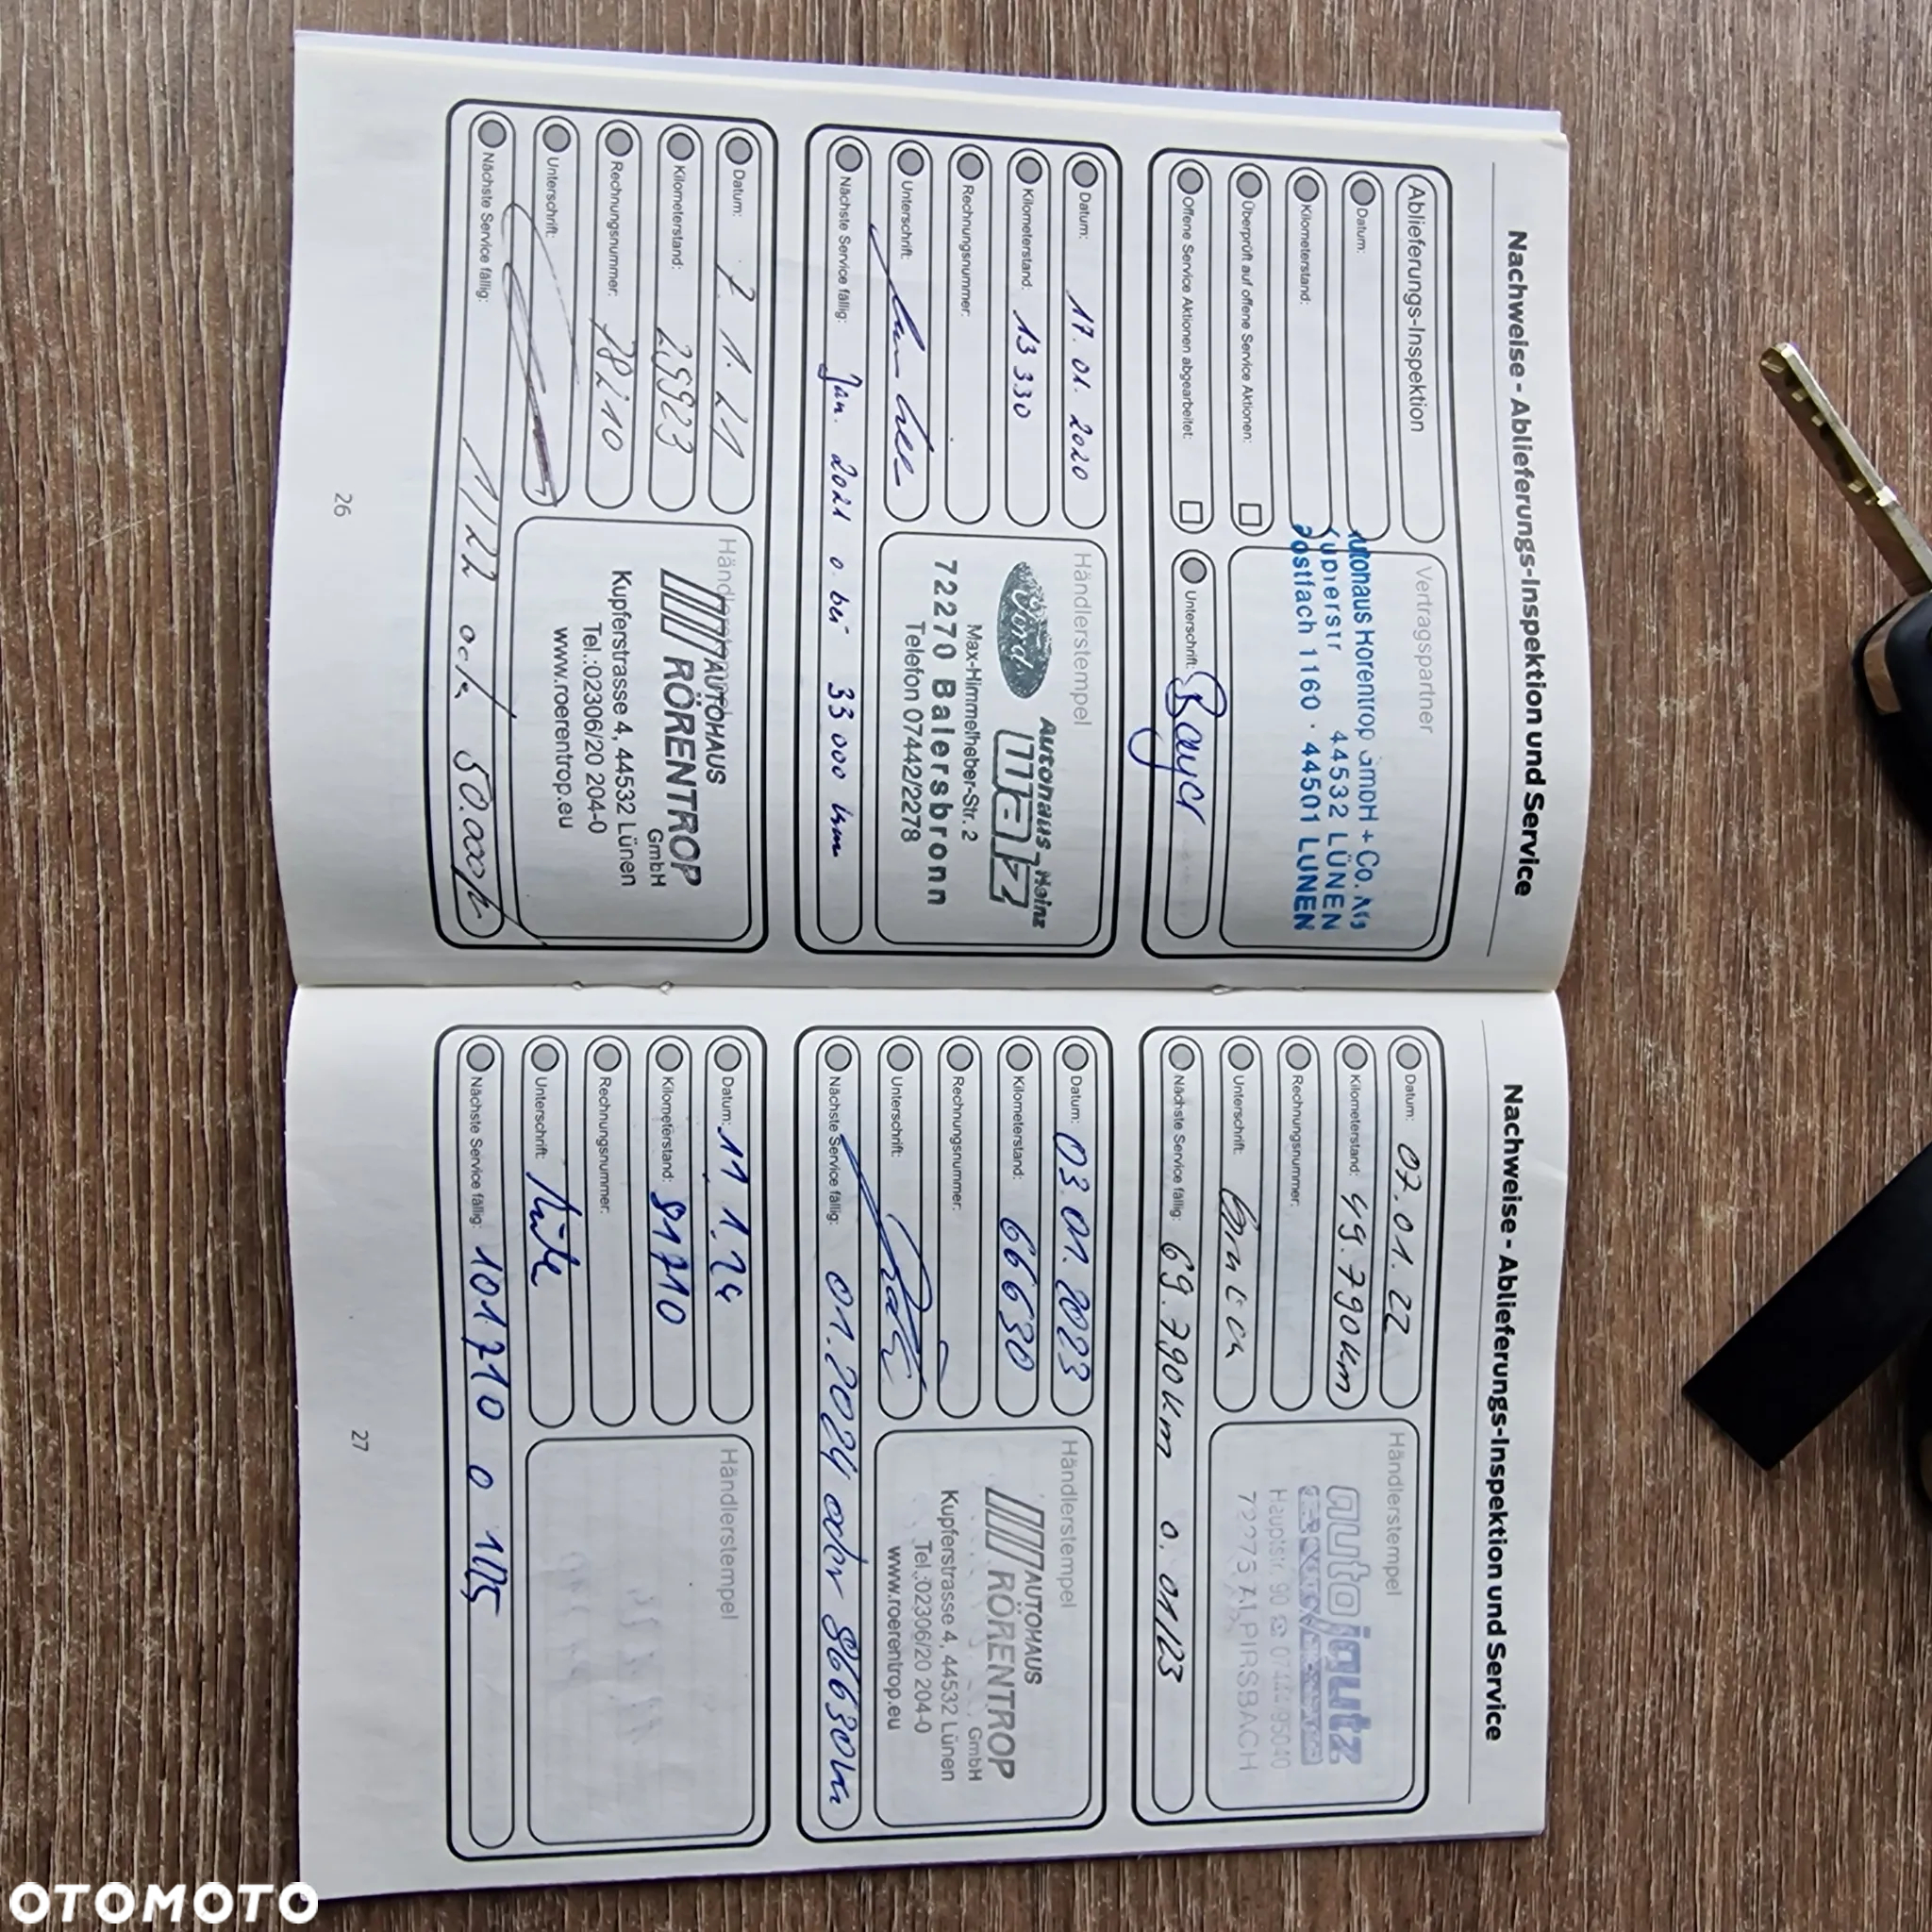 Nachweise - Ablieferungs-Inspektion und Service
Ablieferungs-Inspektion
Datum:
Kilometerstand:
Überprüft auf offene Service Aktionen:
Offene Service Aktionen abgearbeitet:
Vertragspartner
Autohaus Rörentrop GmbH + Co. KG
Kupferstr 44532 LÜNEN
Postfach 1160 · 44501 LÜNEN
Unterschrift: Bayer
Datum: 17.01.2020
Kilometerstand: 13 330
Rechnungsnummer:
Unterschrift:
Nächste Service fällig: Jan. 2021 o. bei 33 000 km
Händlerstempel
Ford
Autohaus Heinz
Max-Himmelheber-Str. 2
72270 Baiersbronn
Telefon 07442/2278
Datum: 7.1.21
Kilometerstand: 29923
Rechnungsnummer: 78210
Unterschrift:
Nächste Service fällig: 1/22 oder 50.000
Händlerstempel
AUTOHAUS
RÖRENTROP
GmbH
Kupferstrasse 4, 44532 Lünen
Tel.:02306/20 204-0
www.roerentrop.eu
26
Nachweise - Ablieferungs-Inspektion und Service
Datum: 07.01.22
Kilometerstand: 49.790km
Rechnungsnummer:
Unterschrift:
Nächste Service fällig: 69.790km o. 01/23
Händlerstempel
autojautz
Hauptstr. 90
72275 ALPIRSBACH
Datum: 03.01.2023
Kilometerstand: 66630
Rechnungsnummer:
Unterschrift:
Nächste Service fällig: 01.2024 oder 86630km
Händlerstempel
AUTOHAUS
RÖRENTROP
GmbH
Kupferstrasse 4, 44532 Lünen
Tel.:02306/20 204-0
www.roerentrop.eu
Datum: 11.1.24
Kilometerstand: 81710
Rechnungsnummer:
Unterschrift:
Nächste Service fällig: 101.710 o 1/25
Händlerstempel
27
OTOMOTO